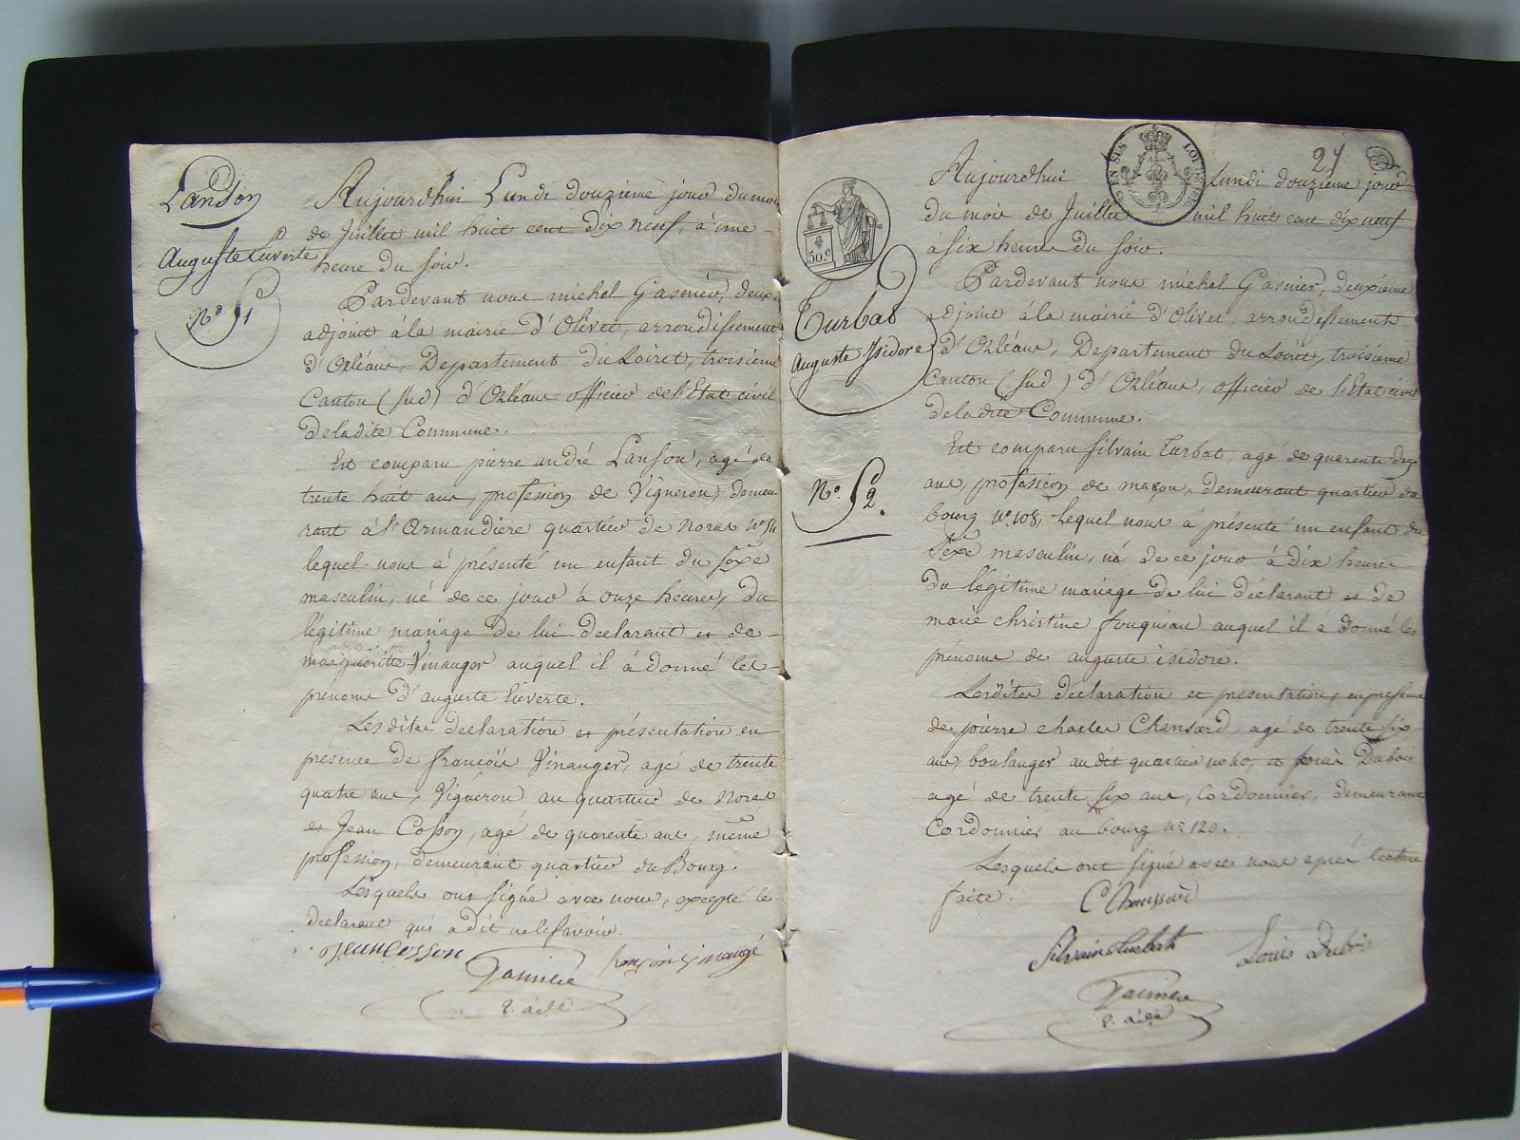 Lanson
Auguste Laverte
N° 51
Aujourdhui Lundi douzieme jour du mois
de Juillet mil huit cent dix neuf, à une
heure du soir.
Pardevant nous michel Gasnier, deux.
adjoint à la mairie d'Olivet, arrondissement
d'Orléans, Departement du Loiret, troisieme
Canton (sud) d'Orléans officier de l'Etat civil
de la dite Commune.
Est comparu pierre andré Lanson, agé de
trente huit ans, profession de Vigneron, demeu
rant à l'Ormandiere quartier de Noras n°
lequel nous a présenté un enfant du sexe
masculin, né de ce jour à onze heures, du
légitime mariage de lui declarant et de
margueritte Vinauger auquel il à donné les
prenoms d'auguste laverte.
Les dites declaration et présentation en
présence de françois Vinauger, age de trente
quatre ans, Vigneron au quartier de Noras
et Jean Cosson, agé de quarente ans, même
profession, demeurant quartier du Bourg.
Lesquels ont signé avec nous, excepté le
declarant qui a dit ne le savoir.
Jean Cosson
Gasnier
2. adjt
27
EN SUS
30.c
Turbat
Auguste Isidore
N° 52.
Aujourdhui Lundi douzieme jour
du mois de Juillet mil huit cent dix neuf
à six heures du soir.
Pardevant nous michel Gasnier, deuxième
adjoint à la mairie d'Olivet arrondissement
d'Orléans, Departement du Loiret, troisieme
Canton (sud) d'Orléans, officier de l'Etat civil
de la dite Commune.
Est comparu silvain Turbat, agé de quarente deux
ans, profession de maçon, demeurant quartier du
bourg n° 108, lequel nous à présenté un enfant du
sexe masculin, né de ce jour à dix heures
du légitime mariage de lui déclarant et de
marie christine fouquiau auquel il a donné les
prénoms de auguste isidore.
Lesdites déclaration et présentation, en présence
de pierre charles Chensard, agé de trente six
ans, boulanger au dit quartier et Dubois
agé de trente six ans, Cordonnier, demeurant
Cordonnier au bourg n° 120.
Lesquels ont signé avec nous après lecture
faite.
Silvain turbat
Louis Dubois
Gasnier
2. adjt